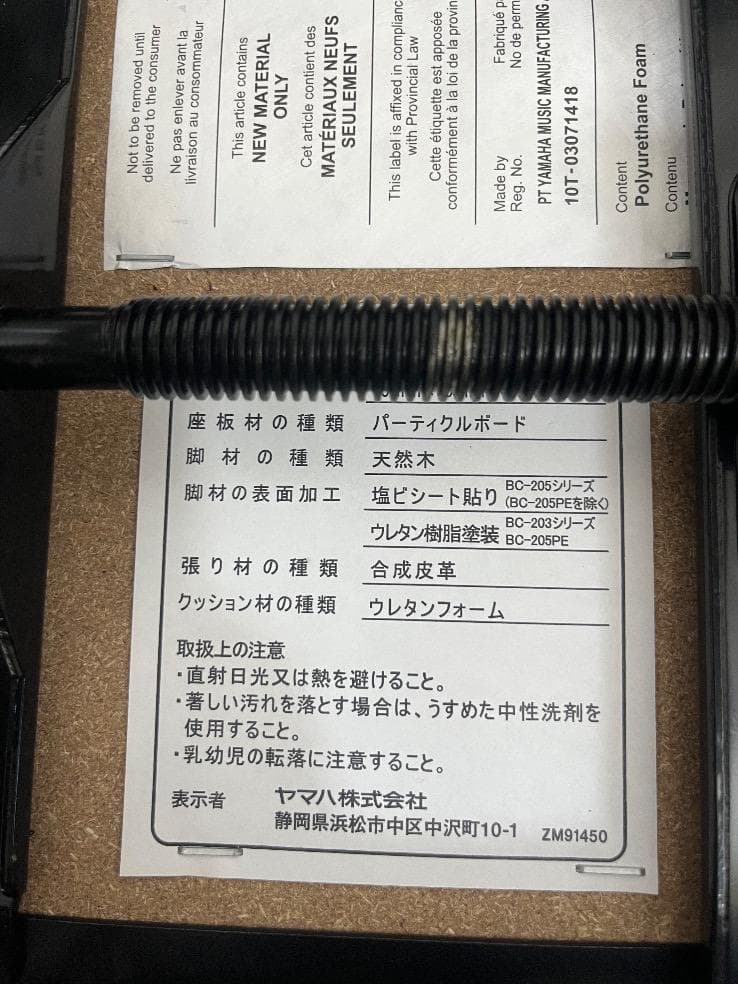 Not to be removed until
delivered to the consumer
Ne pas enlever avant la
livraison au consommateur
This article contains
NEW MATERIAL
ONLY
Cet article contient des
MATÉRIAUX NEUFS
SEULEMENT
This label is affixed in
with Provincial Law
Cette étiquette est apposée
conformément à la loi de la
Made by Fabriqué
Reg. No. No de
PT YAMAHA MUSIC MANUFACTURING
10T-03071418
Content
Polyurethane Foam
Contenu
座板材の種類 パーティクルボード
脚材の種類 天然木
脚材の表面加工 塩ビシート貼り BC-205シリーズ
(BC-205PEを除く)
ウレタン樹脂塗装 BC-203シリーズ
BC-205PE
張り材の種類 合成皮革
クッション材の種類 ウレタンフォーム
取扱上の注意
・直射日光又は熱を避けること。
・著しい汚れを落とす場合は、うすめた中性洗剤を
使用すること。
・乳幼児の転落に注意すること。
表示者 ヤマハ株式会社
静岡県浜松市中区中沢町10-1 ZM91450